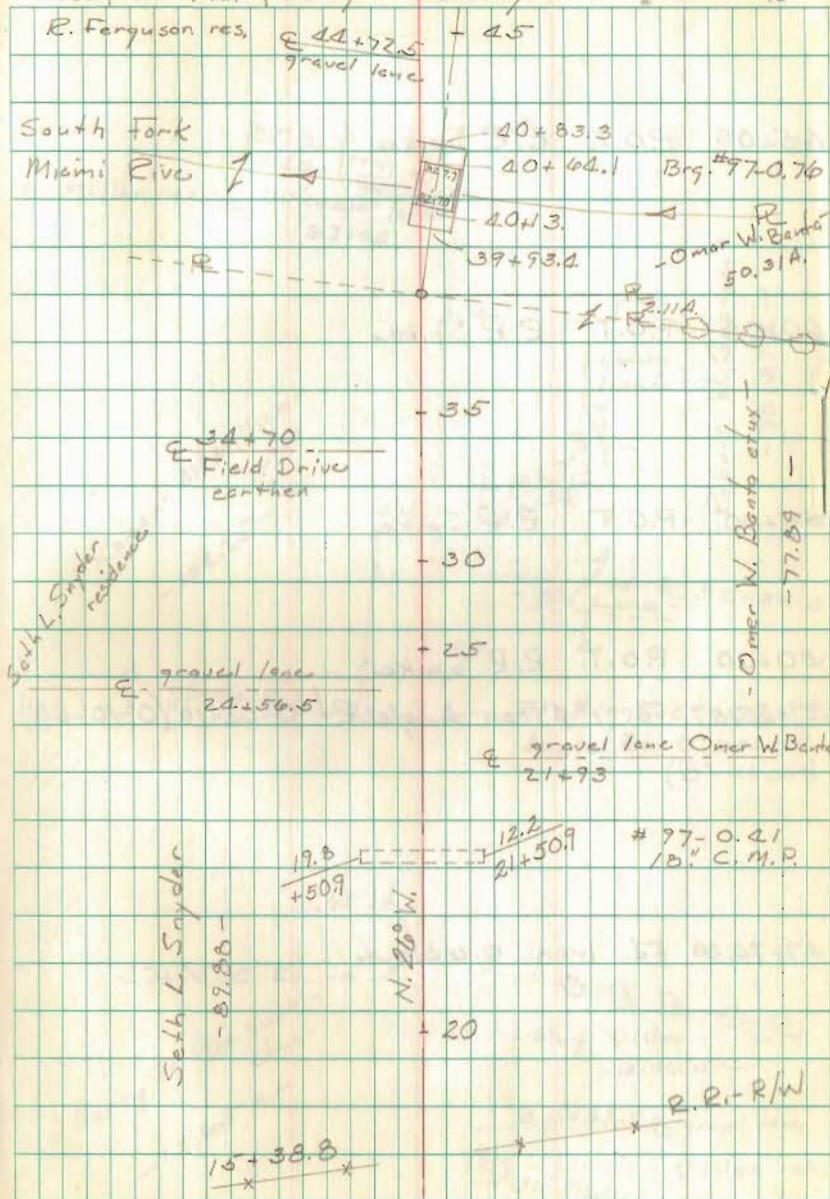 R. Ferguson res.
℄ 44+72.5
gravel lane
45
South Fork
Miami River
40+83.3
40+64.1
Brg. #97-0.76
40+13.
39+93.4
PL
- Omar W. Banta
50.31A.
PL
PL
PL
2.11A.
35
℄ 34+70
Field Drive
earthen
30
Seth L. Snyder
residence
- Omer W. Banta etux -
- 77.89 -
25
℄ gravel lane
24+56.5
℄ gravel lane Omer W. Banta
21+93
19.8
+50.9
12.2
21+50.9
# 97-0.41
18" C.M.P.
Seth L. Snyder
- 89.88 -
N. 26° W.
20
R.R. - R/W
15+38.8